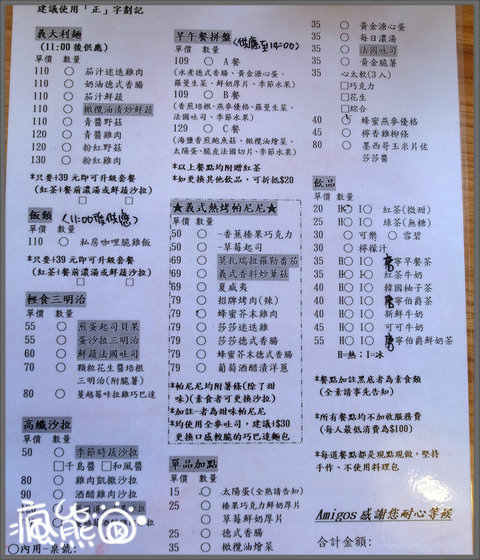 建議使用「正」字劃記
義大利麵
(11:00後供應)
單價 數量
110 ○ 茄汁迷迭雞肉
110 ○ 奶油德式香腸
110 ○ 茄汁鮮蔬
110 ○ 橄欖油清炒鮮蔬
110 ○ 青醬野菇
120 ○ 青醬雞肉
130 ○ 粉紅野菇
130 ○ 粉紅雞肉
*只要+39元即可升級套餐
(紅茶+餐前濃湯或鮮蔬沙拉)
□ □
飯類 (11:00後供應)
單價 數量
110 ○ 私房咖哩脆雞飯
*只要+39元即可升級套餐
(紅茶+餐前濃湯或鮮蔬沙拉)
□ □
輕食三明治
單價 數量
55 ○ 煎蛋起司貝果
55 ○ 蛋沙拉三明治
60 ○ 鮮蔬法國吐司
70 ○ 顆粒花生醬培根
三明治(附脆薯)
80 ○ 蔓越莓咔拉雞巧巴達
高纖沙拉
單價 數量
50 ○ 季節時蔬沙拉
□千島醬 □和風醬
80 ○ 雞肉凱撒沙拉
90 ○ 酒醋雞肉沙拉
○內用-桌號:
早午餐拼盤 (供應至14:00)
單價 數量
109 ○ A餐
(水煮德式香腸、黃金溏心蛋、
羅曼生菜、鮮奶厚片、季節水果)
109 ○ B餐
(香煎培根、燕麥優格、羅曼生菜、
法國吐司、季節水果)
129 ○ C餐
(海鹽香煎鮑魚菇、橄欖油燴菜、
太陽蛋、脆皮法國切片、季節水果)
*以上餐點均附贈紅茶
*如更換其他飲品，可折抵$20
★義式熱烤帕尼尼★
單價 數量
50 ○ -香蕉榛果巧克力
50 ○ -草莓起司
69 ○ 莫札瑞拉羅勒番茄
69 ○ 義式香料炒蕈菇
69 ○ 夏威夷
79 ○ 招牌烤肉(辣)
79 ○ 蜂蜜芥末雞肉
79 ○ 莎莎迷迭雞
79 ○ 莎莎德式香腸
79 ○ 蜂蜜芥末德式香腸
79 ○ 葡萄酒醋漬洋蔥
*帕尼尼均附薯條(除了甜
味)(素食者可更換沙拉)
*加註-者為甜味帕尼尼
*均使用全麥吐司，建議+$30
更換口感較脆的巧巴達麵包
單品加點
單價 數量
15 ○ 太陽蛋(全熟請告知)
25 ○ 榛果巧克力鮮奶厚片
○ 草莓鮮奶厚片
25 ○ 德式香腸
30 ○ 橄欖油燴菜
35 ○ 黃金溏心蛋
35 ○ 每日濃湯
35 ○ 法國吐司
35 ○ 黃金脆薯
35 心太軟(3入)
□巧克力
□花生
□綜合
40 ○ 蜂蜜燕麥優格
45 ○ 檸香雞柳條
80 ○ 墨西哥玉米片佐
莎莎醬
飲品
單價 數量
20 H○ I○ 紅茶(微甜)
25 H○ I○ 綠茶(無糖)
30 ○ 可樂 ○ 雪碧
30 ○ 檸檬汁
35 H○ I○ 唐寧早餐茶
35 H○ I○ 紅茶牛奶
40 H○ I○ 韓國柚子茶
40 H○ I○ 唐寧伯爵茶
40 H○ I○ 新鮮牛奶
45 H○ I○ 可可牛奶
55 H○ I○ 唐寧伯爵鮮奶茶
H=熱；I=冰
*餐點加註黑底者為素食類
(全素請事先告知)
*所有餐點均不加收服務費
(每人最低消費為$100)
*每道餐點都是現點現做，堅持
手作、不使用料理包
Amigos感謝您耐心等候
合計金額:
瘋熊